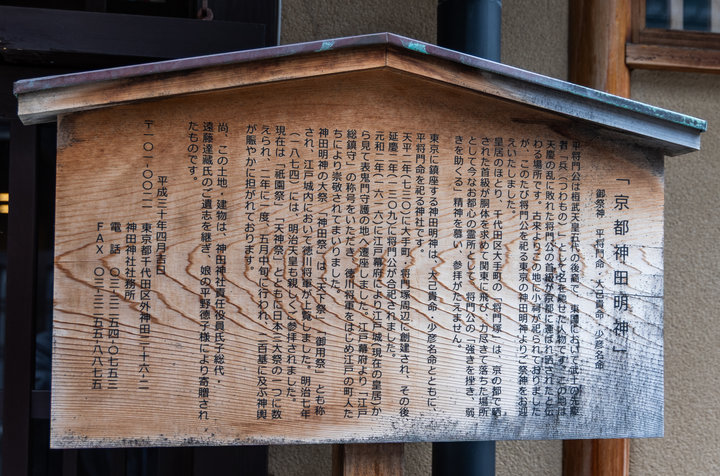 「京都神田明神」
御祭神　平将門命・大己貴命・少彦名命
平将門公は桓武天皇五代の後裔で、東国において「武」の先駆
者「兵（つわもの）」として名を馳せた人物です。この地は
天慶の乱に敗れた将門公の首級が京都に運ばれ晒されたと伝
わる場所です。古来よりこの地に小祠が祀られておりました
が、このたび将門公を祀る東京の神田明神よりご祭神をお迎
えいたしました。
皇居のほとり、千代田区大手町の「将門塚」は、京の都で晒
された首級が胴体を求めて関東に飛び、力尽きて落ちた場所
として今なお都心の霊所として、将門公の「強きを挫き、弱
きを助くる」精神を慕い、参拝がたえません。
東京に鎮座する神田明神は、大己貴命・少彦名命とともに、
平将門命を祀る神社です。
天平二年（七三〇）に大手町・将門塚周辺に創建され、その後
延慶二年（一三〇九）に将門公が合祀されました。
元和二年（一六一六）に江戸幕府により江戸城（現在の皇居）か
ら見て表鬼門守護の地へ遷座されました。江戸幕府より「江戸
総鎮守」の称号をいただき、徳川将軍をはじめ江戸の町人た
ちにより崇敬されてまいりました。
神田明神の大祭「神田祭」は「天下祭」「御用祭」とも称
され、江戸城内において徳川将軍が上覧しました。明治七年
（一八七四）には、明治天皇も親しくご参拝されました。
現在は「祇園祭」「天神祭」とともに日本三大祭の一つに数
えられ、二年に一度、五月中旬に行われ、二百基に及ぶ神輿
が賑やかに担がれております。
尚、この土地、建物は、神田神社責任役員氏子総代・
遠藤達藏氏のご遺志を継ぎ、娘の平野徳子様により寄贈され
たものです。
平成三十年四月吉日
〒一〇一-〇〇二一　東京都千代田区外神田二-十六-二
神田神社社務所
電話　〇三-三二五四-〇七五三
FAX　〇三-三二五五-八八七五